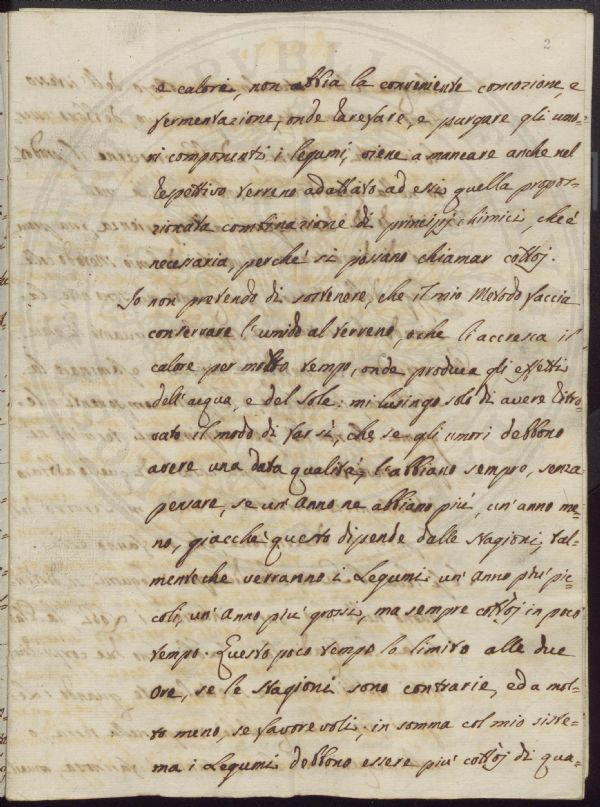 2
e calore, non abbia la conveniente concozione, e
fermentazione, onde rarefare, e purgare gli umo-
ri componenti i legumi, viene a mancare anche nel
respettivo terreno adattato ad essi quella propor-
zionata combinazione di principj chimici, che è
necessaria, perchè si possano chiamar cottoj.
Io non pretendo di sostenere, che il mio Metodo faccia
conservare l'umido al terreno, o che li accresca il
calore per molto tempo, onde produca gli effetti
dell'acqua, e del Sole: mi lusingo solo di avere ritro-
vato il modo di far sì, che se gli umori debbono
avere una data qualità, l'abbiano sempre, senza
pensare, se un'anno ne abbiano più, un'anno me-
no, giacchè questo dipende dalle Stagioni, tal-
mente che verranno i Legumi un'anno più pic-
coli, un'Anno più grossi, ma sempre cottoj in poco
tempo. Questo poco tempo lo limito alle due
Ore, se le Stagioni sono contrarie, ed a mol-
to meno, se favorevoli; in somma col mio siste-
ma i Legumi debbono essere più cottoj di qua-